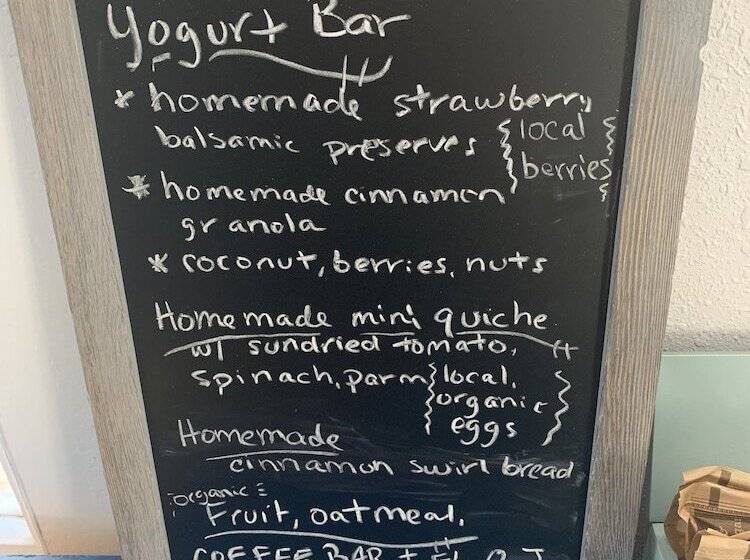 Yogurt Bar
* homemade strawberry
balsamic preserves {local
berries}
* homemade cinnamon
granola
* coconut, berries, nuts
Homemade mini quiche
w/ sundried tomato,
spinach, parm {local,
organic
eggs}
Homemade
cinnamon swirl bread
organic
Fruit, oatmeal,
COFFEE BAR +